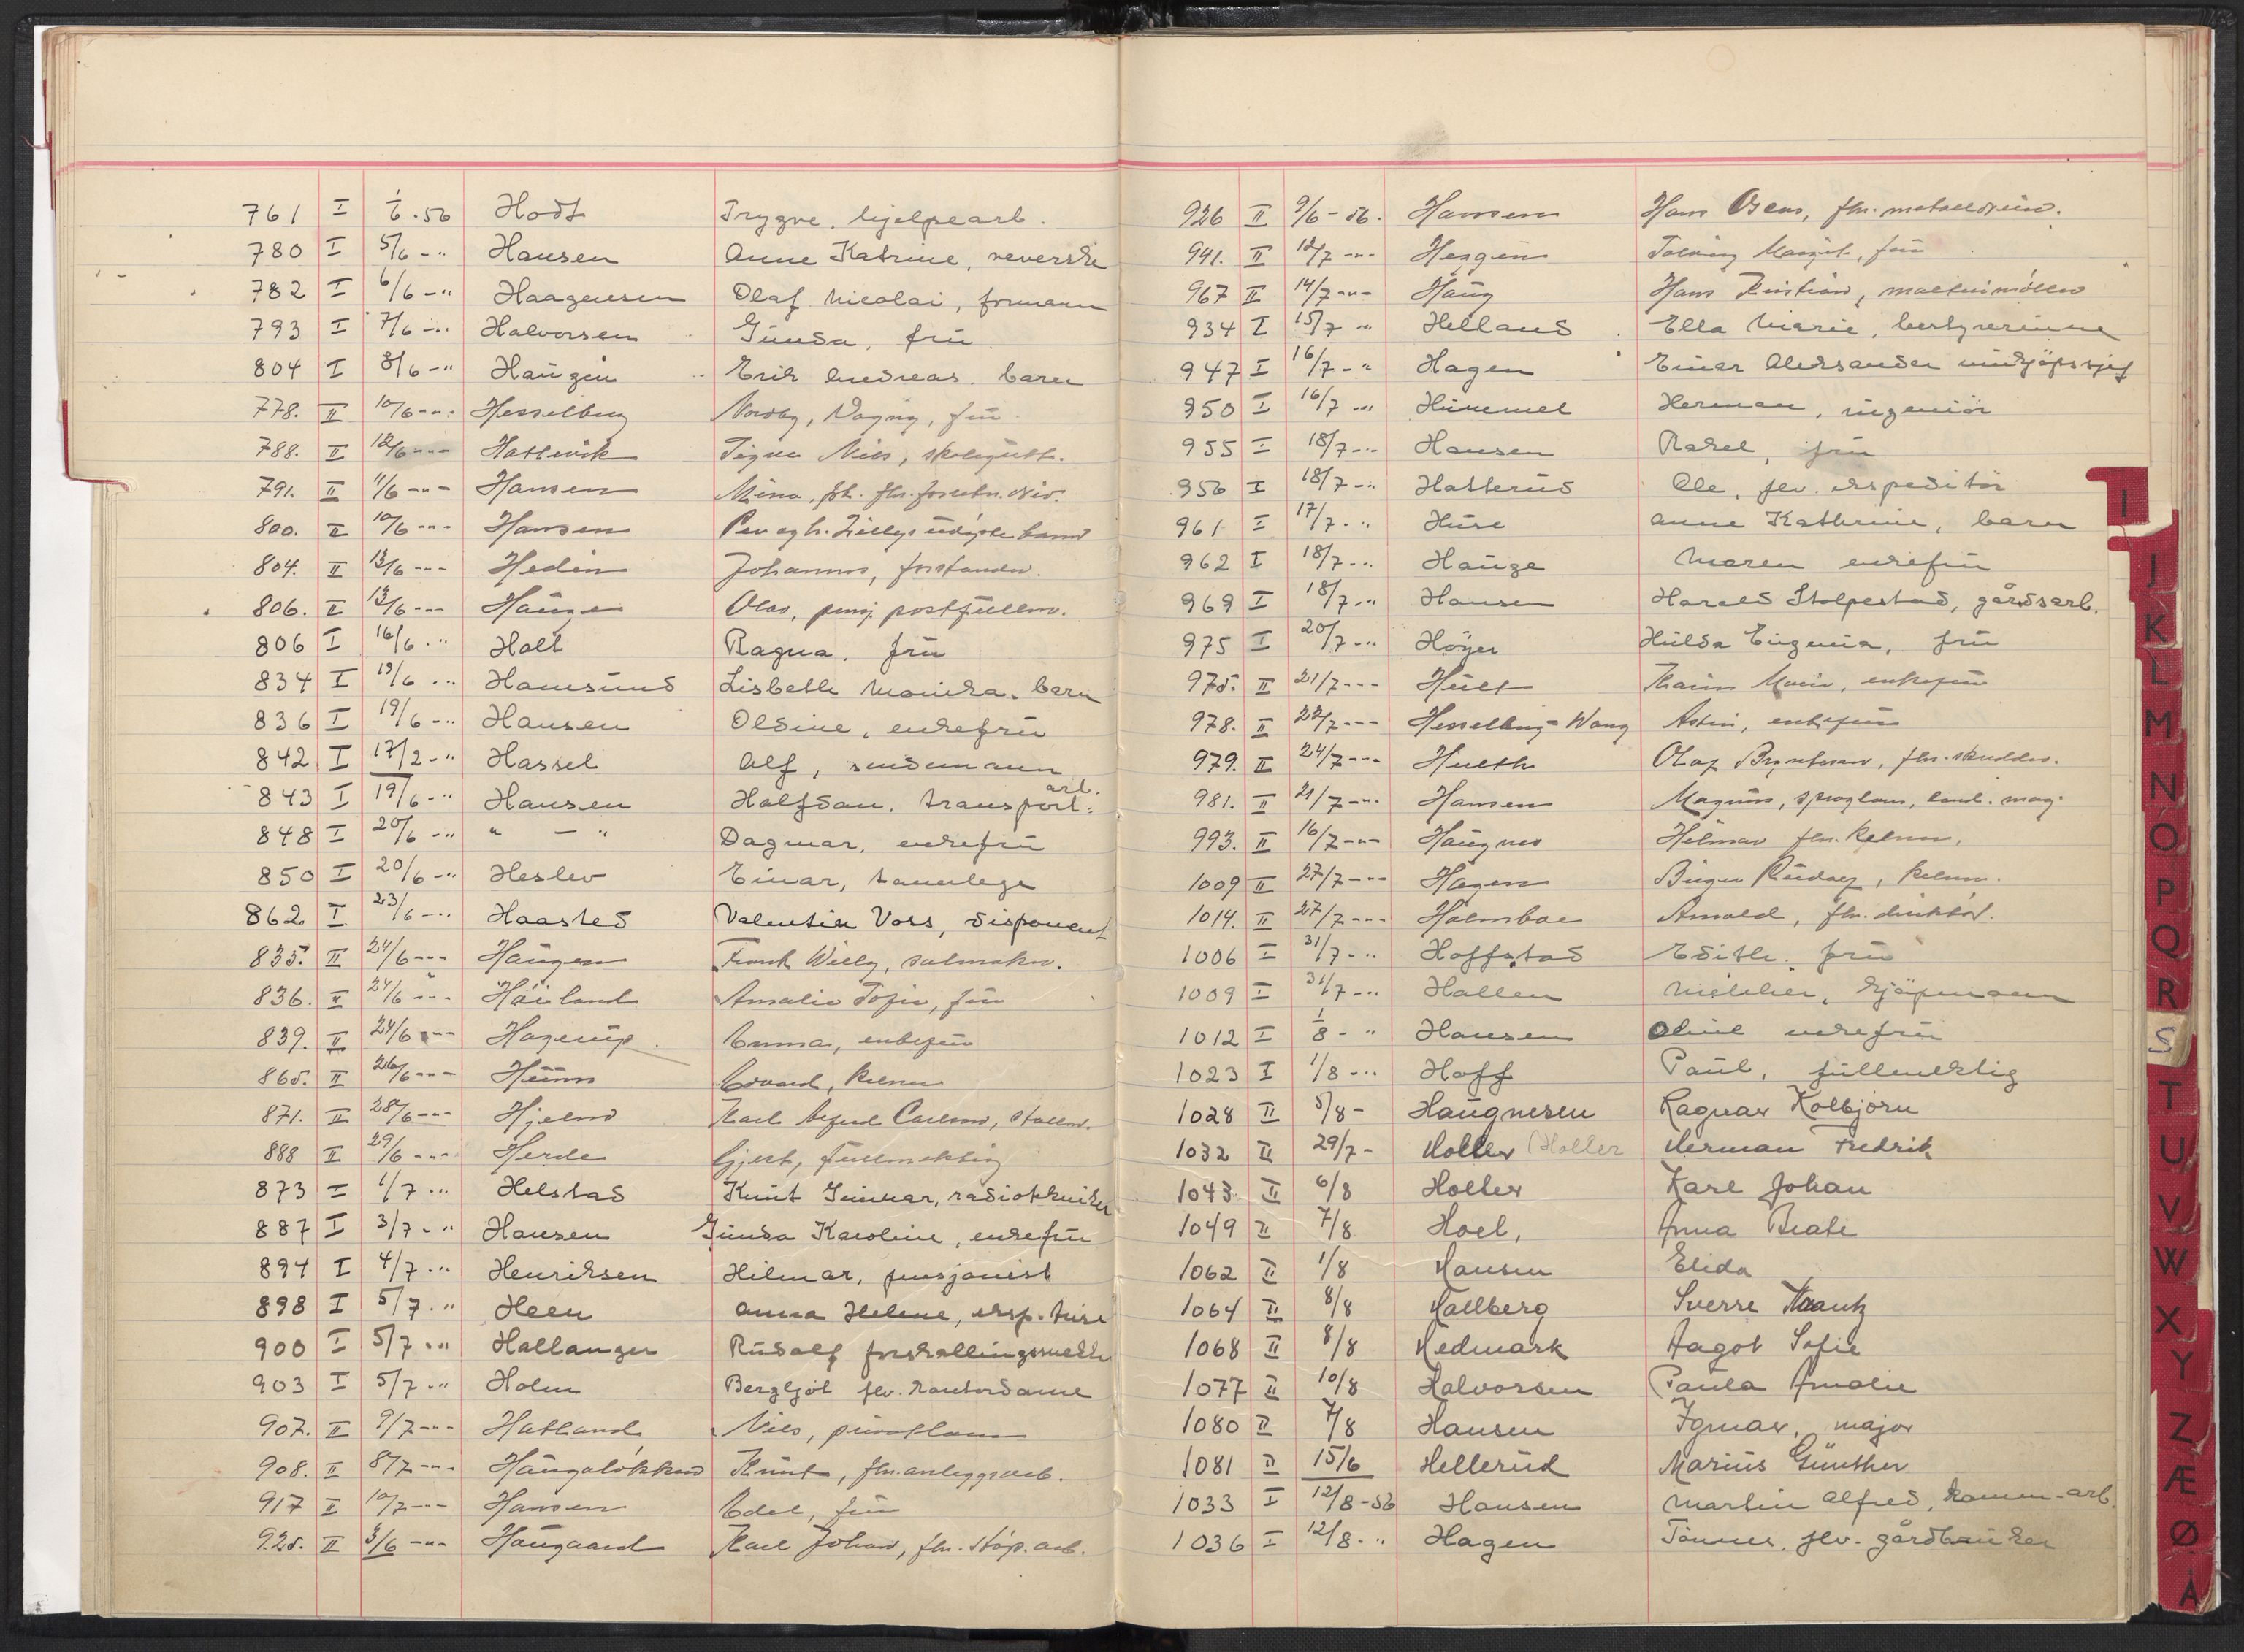 761 I 1/6.56 Hodt Trygve, hjelpearb.
780 I 5/6 -" Hansen Anne Katrine, veverske
782 I 6/6 -" Haagensen Olaf Nicolai, formann
793 I 7/6 -" Halvorsen Gunda, fru
804 I 8/6 -" Haugen Erik Andreas, barn
778. II 10/6 -"- Hesselberg Nordby, Dagny, fru
788. II 12/6 -"- Hattevik Nils, skolegutt.
791. II 11/6 -"- Hansen Mina,
800. II 10/6 -"- Hansen
804. II 13/6 -"- Hedin Johannes, forstander.
806. II 13/6 -"- Hauge Olav, pensj. postfullm.
806 I 16/6 -" Holt Ragna, fru
834 I 19/6 -" Hamsund Lisbeth Monika, barn
836 I 19/6 -" Hansen Oldine, enkefru
842 I 17/2 -" Hassel Alf, sendemann
843 I 19/6 -" Hansen Halfdan, transport- arb.
848 I 20/6 -" " - " Dagmar, enkefru
850 I 20/6 -" Heslev Einar, tannlege
862 I 23/6 -" Haasted Valentin Voss, disponent
835. II 24/6 -"- Haugen Frank Willy, salmaker.
836. II 24/6 -"- Høiland Amalie Sofie, fru
839. II 24/6 -"- Hagerup Emma, enkefru
865. II 26/6 -"- Edvard, kelner
871. II 28/6 -"- Hjelm Karl Alfred Carlsen,
888 II 29/6 -"- Herde Gjert, fullmektig
873 I 1/7 -" Helstad Knut Gunnar, radiotekniker
887 I 3/7 -" Hansen Gunda Karoline, enkefru
894 I 4/7 -" Henriksen Hilmar, pensjonist
898 I 5/7 -" Heen Anna Helene, eksp. trise
900 I 5/7 -" Hallanger Rudolf
903 I 5/7 -" Holm Bergljot flv. kontordame
907. II 9/7 -"- Hatland Nils, privatlærer
908. II 8/7 -"- Haugaløkken Knut, fhv. anleggsarb.
917 II 10/7 -"- Hansen Edel, fru
925. II 3/6 -"- Haugaard Karl Johan, fhv. støp. arb.
926 II 9/6 - 56. Hansen Hans Oscar, fhv.
941. II 12/7 -"- Heggen Margit, fru
967 II 14/7 -"- Haug Hans Kristian,
934 I 15/7 -" Helland Ella Marie, bestyrerinne
947 I 16/7 -" Hagen Einar Aleksander innkjøpssjef
950 I 16/7 -" Hummel Herman, ingeniør
955 I 18/7 -" Hansen Rakel, fru
956 I 18/7 -" Hatterud Ole, flv. ekspeditør
961 I 17/7 -" Huse Anne Kathrine, barn
962 I 18/7 -" Hauge Maren enkefru
969 I 18/7 -" Hansen Harald Stolpestad, gårdsarb.
975 I 20/7 -" Høyer Hulda Eugenia, fru
975. II 21/7 -"- Hult Marie, enkefru
978. II 22/7 -"- Hesselberg-Wang enkefru
979. II 24/7 -"- Hulth Olaf
981. II 21/7 -"- Hansen Magnus, cand. mag.
993. II 16/7 -"- Haugnes Hilmar fhv. kelner.
1009 II 27/7 -"- Hagen Birger Rudolf, kelner.
1014. II 27/7 -"- Holmboe Arnold, fhv. direktør.
1006 I 31/7 -" Hoffstad Edith, fru
1009 I 31/7 -" Hallen kjøpmann
1012 I 1/8 -" Hansen Oline enkefru
1023 I 1/8 -" Hoff Paul, fullmektig
1028 II 5/8 - Haugnesen Ragnar Kolbjørn
1032 II 29/7 - Holler (Holler Herman Fredrik
1043 II 6/8 Holter Karl Johan
1049 II 7/8 Hoel, Anna Beate
1062 II 1/8 Hansen Elida
1064 II 8/8 Hallberg Sverre Krantz
1068 II 8/8 Hedmark Aagot Sofie
1077 II 10/8 Halvorsen Paula Amalie
1080 II 7/8 Hansen major
1081 II 15/6 Hellerud Marius Günther
1033 I 12/8-56 Hansen Martin Alfred, komm-arb.
1036 I 12/8 -" Hagen Tønnes, flv. gårdbruker
I
J
K
L
M
N
O
P
Q
R
S
T
U
V
W
X
Y
Z
Æ
Ø
Å